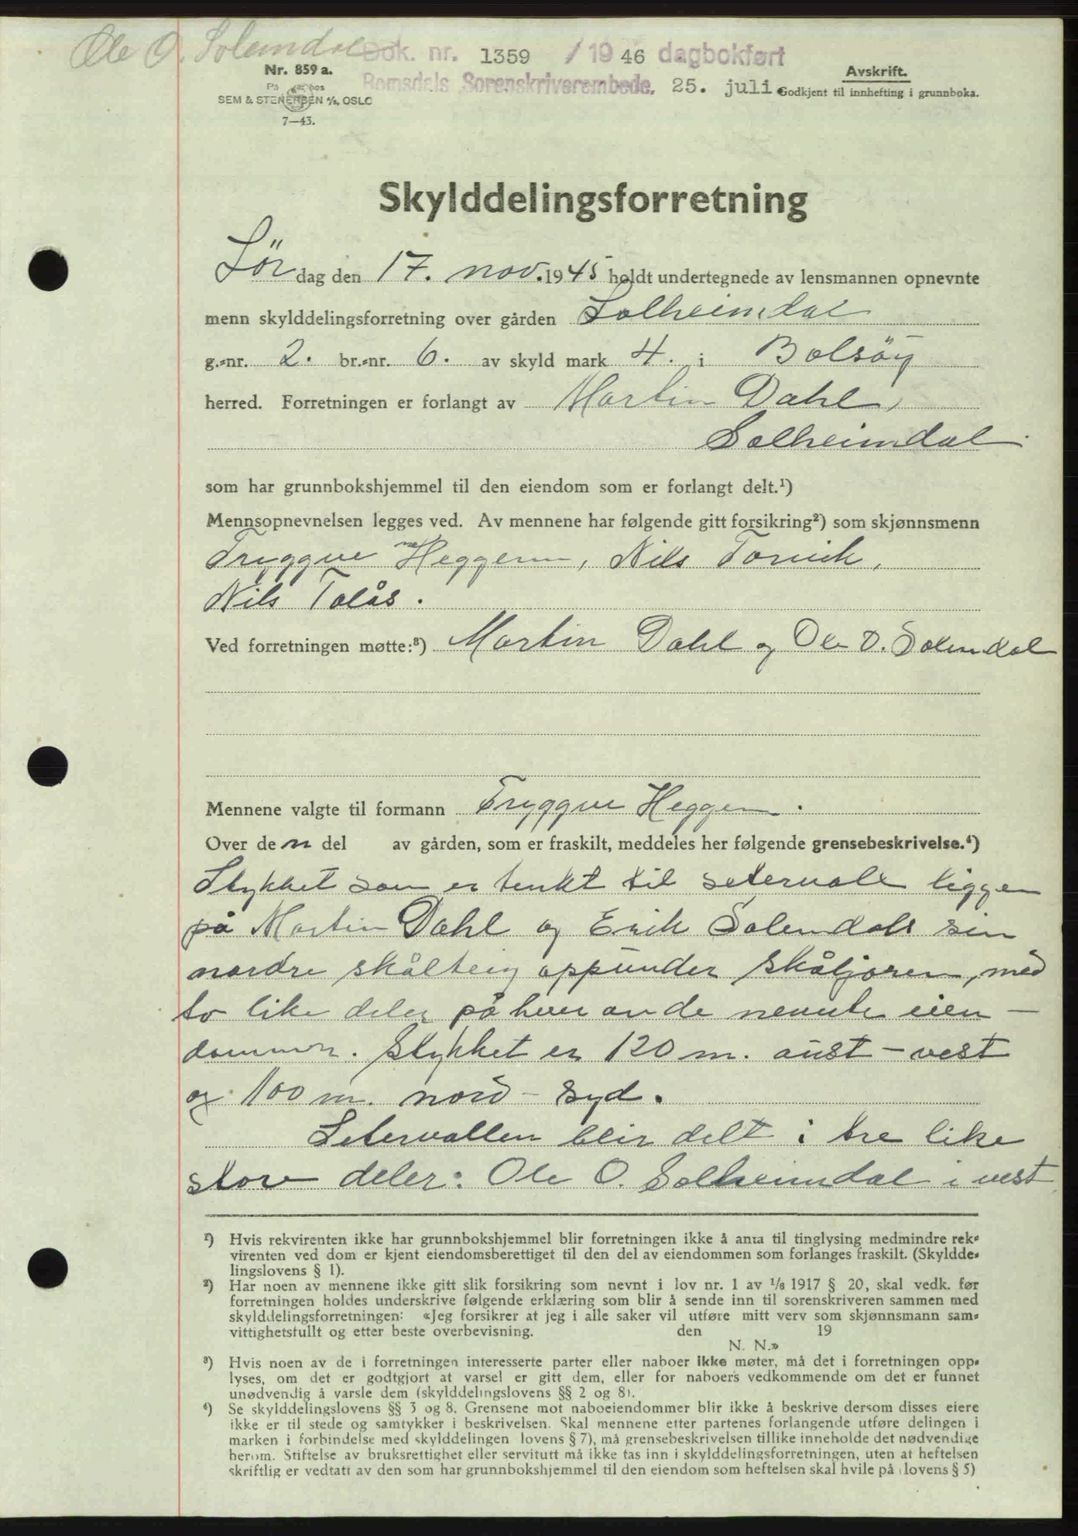 Ole O. Solemdal
Dok. nr. 1359 / 19 46 dagbokført
Romsdals Sorenskriverembede, 25. juli
Nr. 859 a.
SEM & STENERSEN A/S, OSLO
7—43.
Avskrift.
Godkjent til innhefting i grunnboka.
Skylddelingsforretning
Lør dag den 17. nov. 1945 holdt undertegnede av lensmannen opnevnte
menn skylddelingsforretning over gården Solheimdal
g.-nr. 2. br.-nr. 6. av skyld mark 4. i Bolsøy
herred. Forretningen er forlangt av Martin Dahl,
Solheimdal.
som har grunnbokshjemmel til den eiendom som er forlangt delt.¹)
Mennsopnevnelsen legges ved. Av mennene har følgende gitt forsikring²) som skjønnsmenn
Tryggve Heggem, Nils Torvik,
Nils Tolås.
Ved forretningen møtte:³) Martin Dahl og Ole O. Solemdal
Mennene valgte til formann Tryggve Heggem.
Over de n del av gården, som er fraskilt, meddeles her følgende grensebeskrivelse.⁴)
Stykket som er tenkt til setervoll ligger
på Martin Dahl og Erik Solemdals sin
nordre skålteig oppunder skåljoren, med
to like deler på hver av de nevnte eien-
dommer. Stykket er 120 m. aust-vest
og 100 m. nord-syd.
Setervollen blir delt i tre like
store deler: Ole O. Solheimdal i vest
¹) Hvis rekvirenten ikke har grunnbokshjemmel blir forretningen ikke å anta til tinglysing medmindre rek-
virenten ved dom er kjent eiendomsberettiget til den del av eiendommen som forlanges fraskilt. (Skyldde-
lingslovens § 1).
²) Har noen av mennene ikke gitt slik forsikring som nevnt i lov nr. 1 av ¹/₆ 1917 § 20, skal vedk. før
forretningen holdes underskrive følgende erklæring som blir å sende inn til sorenskriveren sammen med
skylddelingsforretningen: «Jeg forsikrer at jeg i alle saker vil utføre mitt verv som skjønnsmann sam-
vittighetsfullt og etter beste overbevisning. den 19
N. N.»
³) Hvis noen av de i forretningen interesserte parter eller naboer ikke møter, må det i forretningen opp-
lyses, om det er godtgjort at varsel er gitt dem, eller for naboers vedkommende om det er funnet
unødvendig å varsle dem (skylddelingslovens §§ 2 og 8).
⁴) Se skylddelingslovens §§ 3 og 8. Grensene mot naboeiendommer blir ikke å beskrive dersom disses eiere
ikke er til stede og samtykker i beskrivelsen. Skal mennene etter partenes forlangende utføre delingen i
marken i forbindelse med skylddelingen lovens § 7), må grensebeskrivelsen tillike inneholde det nødvendige
herom. Stiftelse av bruksrettighet eller servitutt må ikke tas inn i skylddelingsforretningen, uten at heftelsen
skriftlig er vedtatt av den som har grunnbokshjemmel til den eiendom som heftelsen skal hvile på (lovens § 5)